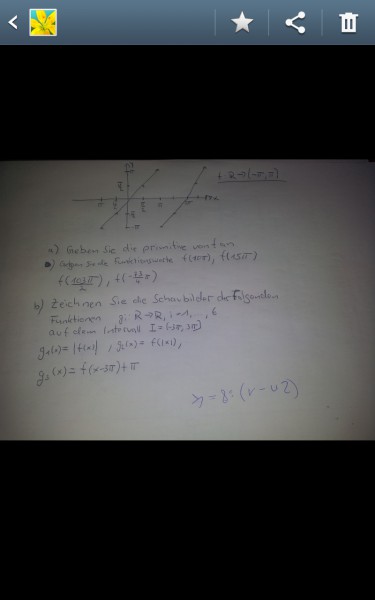 f: R→[-π,π]
a) Geben Sie die primitve von f an
b) Geben Sie die Funktionswerte f(10π), f(15π)
f(103π/2), f(-23/4 π)
b) Zeichnen Sie die Schaubilder der folgenden
Funktionen gi: R→R, i=1,..., 6
auf dem Intervall I=[-3π, 3π]
g₁(x)=|f(x)|, g₂(x)=f(|x|),
g₃(x)=f(x-3π)+π